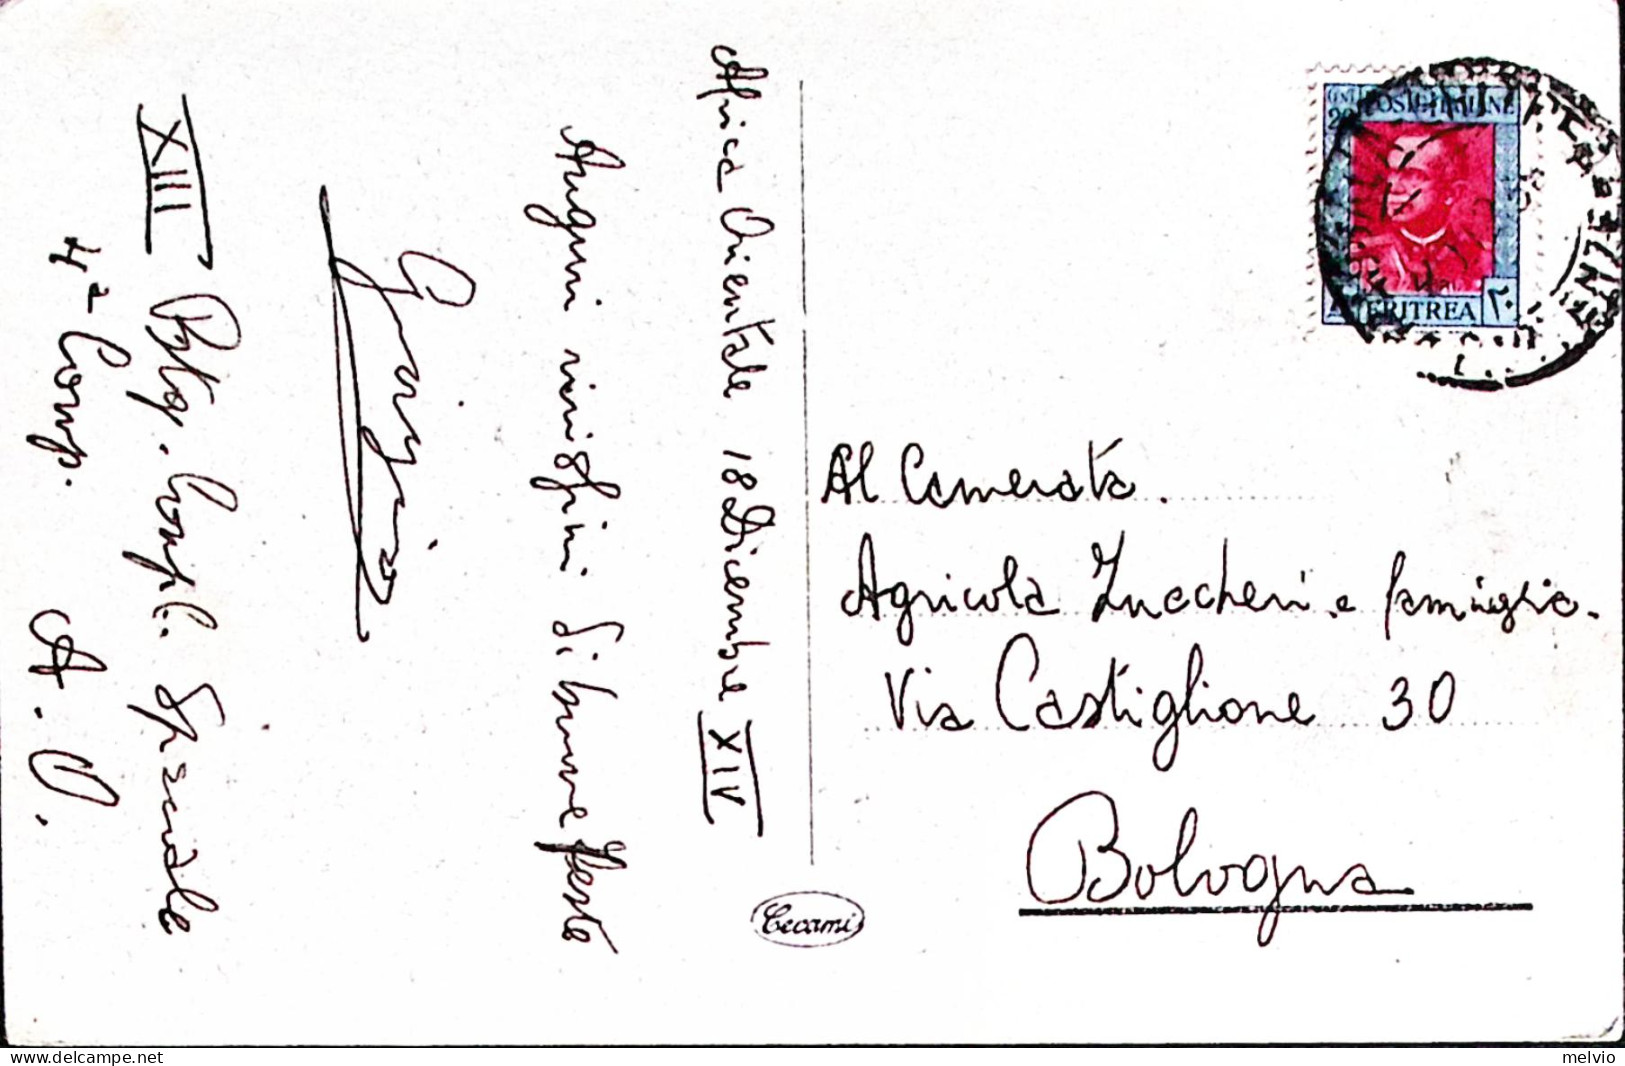 Africa Orientale 18 Dicembre XIV
Auguri vivissimi di buone feste
Giorgio
XIII Btg. Compl. Speciale
4ª Comp. A.O.
CENT. 20 POSTE ITALIANE
ERITREA ٢٠
Al Camerata
Agricola Zuccheri e famiglia.
Via Castiglione 30
Bologna
Cecami
delcampe.net
melvio